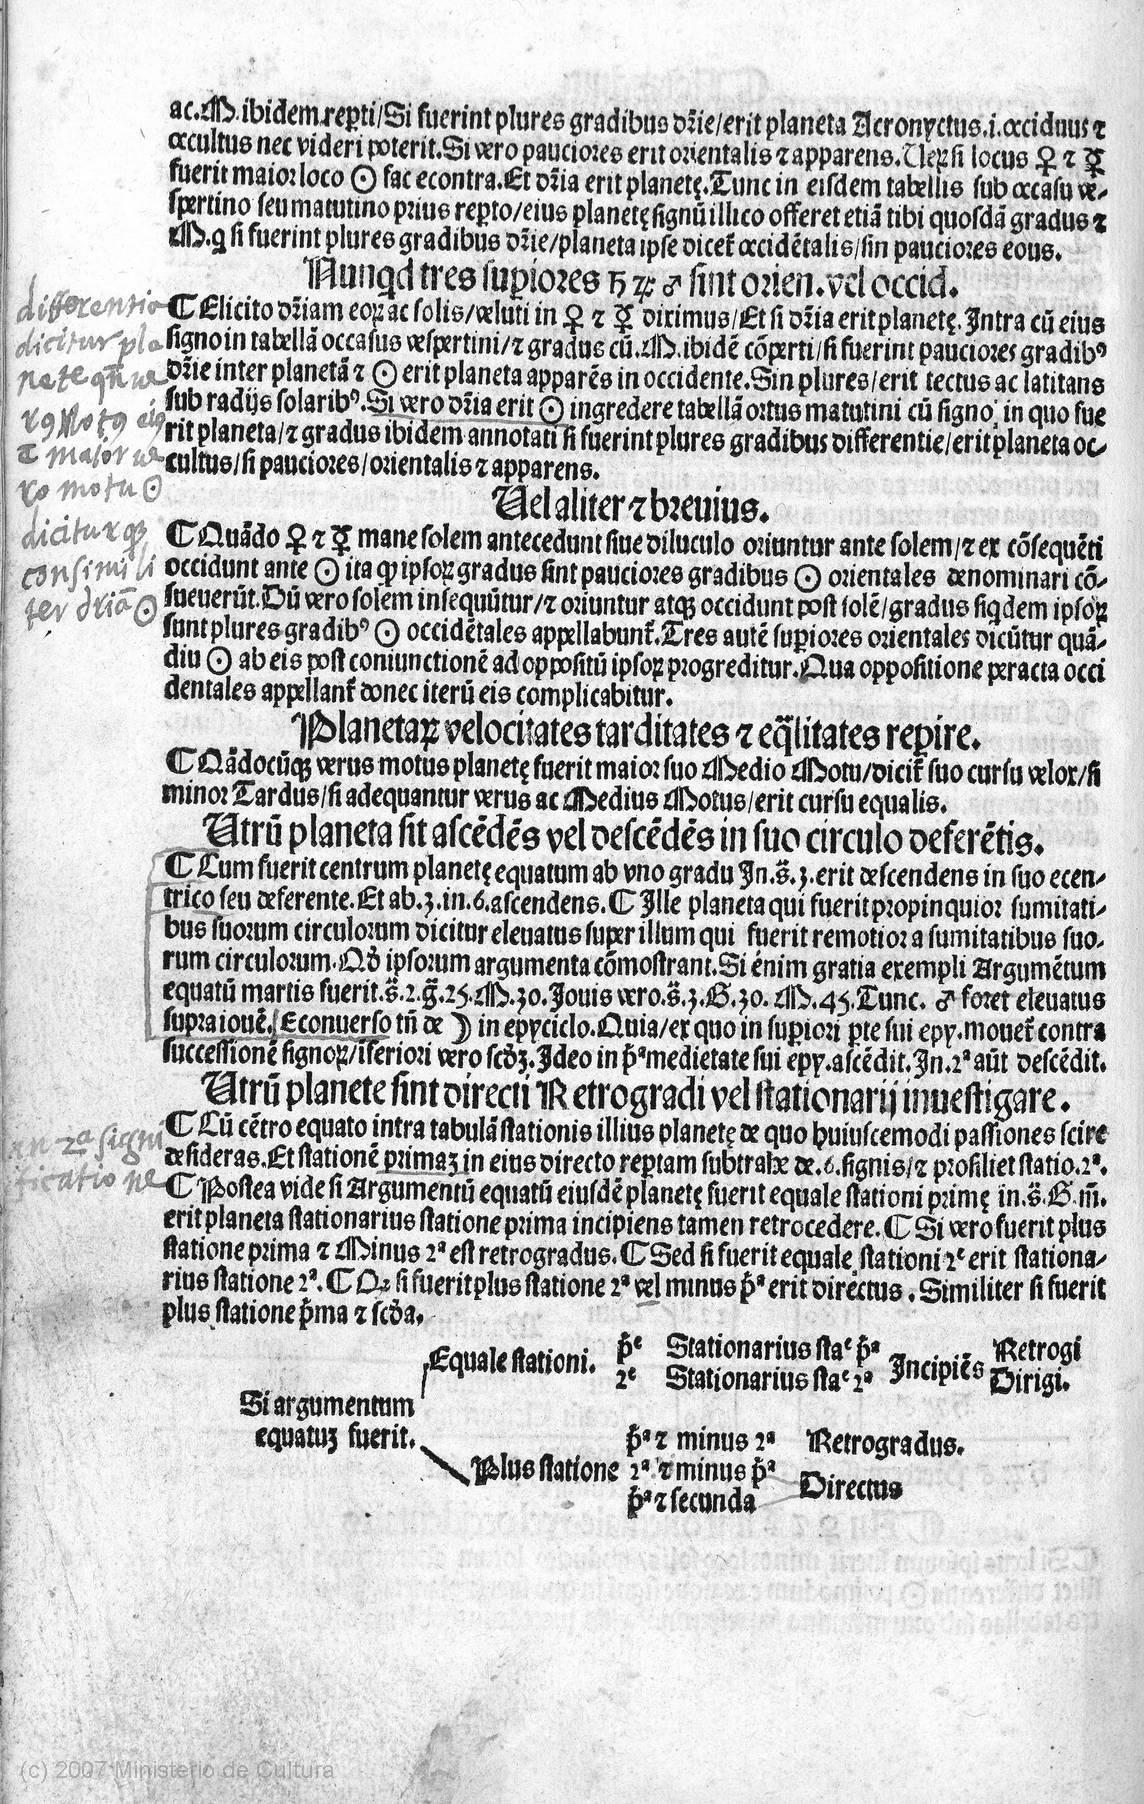 ac.M.ibidem reꝑti/Si fuerint plures gradibus dr̃ie/erit planeta Acronyctus.i.occiduus ⁊
occultus nec videri poterit.Si vero pauciores erit orientalis ⁊ apparens. Ueꝝ si locus ♀ ⁊ ☿
fuerit maior loco ☉ fac econtra.Et dr̃ia erit planetę.Tunc in eisdem tabellis sub occasu ve-
spertino seu matutino prius reꝑto/eius planetę signũ illico offeret etiã tibi quosdã gradus ⁊
M.ꝗ si fuerint plures gradibus dr̃ie/planeta ipse dicet̃ occidẽtalis/sin pauciores eous.
Nunqd tres suꝑiores ♄ ♃ ♂ sint orien.vel occid.
¶ Elicito dr̃iam eoꝝ ac solis/veluti in ♀ ⁊ ☿ diximus/Et si dr̃ia erit planetę. Intra cũ eius
signo in tabellã occasus vespertini/⁊ gradus cũ.M.ibidẽ cõperti/si fuerint pauciores gradibꝰ
dr̃ie inter planetã ⁊ ☉ erit planeta apparẽs in occidente.Sin plures/erit tectus ac latitans
sub radijs solaribꝰ.Si vero dr̃ia erit ☉ ingredere tabellã ortus matutini cũ signo, in quo fue
rit planeta/⁊ gradus ibidem annotati si fuerint plures gradibus differentie/erit planeta oc-
cultus/si pauciores/orientalis ⁊ apparens.
Uel aliter ⁊ breuius.
¶ Quãdo ♀ ⁊ ☿ mane solem antecedunt siue diluculo oriuntur ante solem/⁊ ex cõsequẽti
occidunt ante ☉ ita ꝙ ipsoꝝ gradus sint pauciores gradibus ☉ orientales denominari cõ-
sueuerũt.Dũ vero solem insequũtur/⁊ oriuntur atqꝫ occidunt post solẽ/gradus siqdem ipsoꝝ
sunt plures gradibꝰ ☉ occidẽtales appellabunt̃.Tres autẽ suꝑiores orientales dicũtur quã-
diu ☉ ab eis post coniunctionẽ ad oppositũ ipsoꝝ progreditur.Qua oppositione peracta occi
dentales appellant̃ donec iterũ eis complicabitur.
Planetaꝝ velocitates tarditates ⁊ eq̃litates reꝑire.
¶ Qñdocũqꝫ verus motus planetę fuerit maior suo Medio Motu/dicit̃ suo cursu velox/si
minor Tardus/si adequantur verus ac Medius Motus/erit cursu equalis.
Utrũ planeta sit ascẽdẽs vel descẽdẽs in suo circulo deferẽtis.
¶ Cum fuerit centrum planetę equatum ab vno gradu In.s̃.3.erit descendens in suo ecen-
trico seu deferente.Et ab.3.in.6.ascendens.¶ Ille planeta qui fuerit propinquior sumitati-
bus suorum circulorum dicitur eleuatus super illum qui fuerit remotior a sumitatibus suo-
rum circulorum.Qð ipsorum argumenta cõmostrant.Si enim gratia exempli Argumẽtum
equatũ martis fuerit.s̃.2.g̃.25.M.30.Iouis vero.s̃.3.G.30.M.45.Tunc. ♂ foret eleuatus
supra iouẽ.Econuerso tñ de ☽ in epyciclo.Quia/ex quo in suꝑiori ꝑte sui epy.mouet̃ contra
successionẽ signoꝝ/ĩferiori vero scðꝫ.Ideo in p̃ᵃ medietate sui epy.ascẽdit.In.2ᵃ aũt descẽdit.
Utrũ planete sint directi Retrogradi vel stationarij inuestigare.
¶ Cũ cẽtro equato intra tabulã stationis illius planetę de quo huiuscemodi passiones scire
desideras.Et stationẽ primaꝫ in eius directo reꝑtam subtrahe de.6.signis/⁊ prosiliet statio.2ᵃ.
¶ Postea vide si Argumentũ equatũ eiusdẽ planetę fuerit equale stationi primę in.s̃.G.m̃.
erit planeta stationarius statione prima incipiens tamen retrocedere.¶ Si vero fuerit plus
statione prima ⁊ Minus 2ᵃ est retrogradus.¶ Sed si fuerit equale stationi 2ᵉ erit stationa-
rius statione 2ᵃ.¶ Qꝛ si fuerit plus statione 2ᵃ vel minus p̃ᵃ erit directus. Similiter si fuerit
plus statione p̃ma ⁊ scða.
Si argumentum
equatuꝫ fuerit.
Equale stationi. p̃ᵉ Stationarius staᵉ p̃ᵃ Incipiẽs Retrogi
2ᵉ Stationarius staᵉ 2ᵃ Dirigi.
Plus statione p̃ᵃ ⁊ minus 2ᵃ Retrogradus.
2ᵃ ⁊ minus p̃ᵃ Directus
p̃ᵃ ⁊ secunda
differentia
dicitur pla
nete qñ ve
rꝰ Motꝰ eiꝰ
maior ve
ro motu ☉
dicitur qꝫ
consimili
ter dr̃ia ☉
in 2ᵃ signi
ficatione
(c) 2007 Ministerio de Cultura